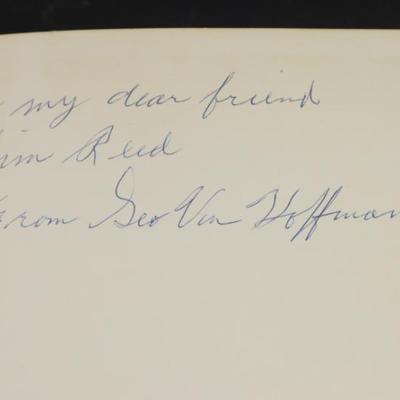 my dear friend
Reed
From Geo Von Hoffman